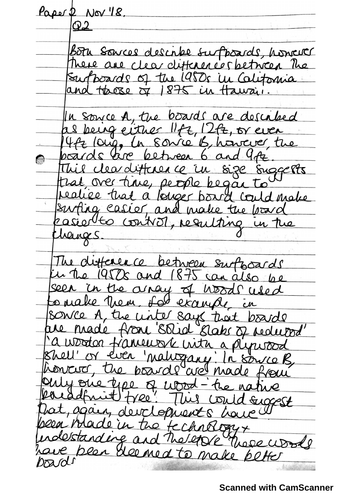 Paper 2 Nov '18.
Q2
Both sources describe surfboards, however
there are clear differences between the
surfboards of the 1950s in California
and those of 1875 in Hawaii.
In source A, the boards are described
as being either 11ft, 12ft, or even
14ft long. In source B, however, the
boards are between 6 and 9ft.
This clear difference in size suggests
that, over time, people began to
realise that a longer board could make
surfing easier, and make the board
easier to control, resulting in the
changes.
The difference between surfboards
in the 1950s and 1875 can also be
seen in the array of woods used
to make them. For example, in
source A, the writer says that boards
are made from 'solid slabs of redwood'
'a wooden framework with a plywood
shell' or even 'mahogany'. In source B,
however, the boards are made from
only one type of wood - the native
'breadfruit tree'. This could suggest
that, again, developments have
been made in the technology +
understanding and therefore these woods
have been deemed to make better
boards
Scanned with CamScanner